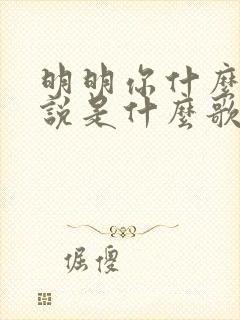 明明你什麼
說是什麼歌
倔傻